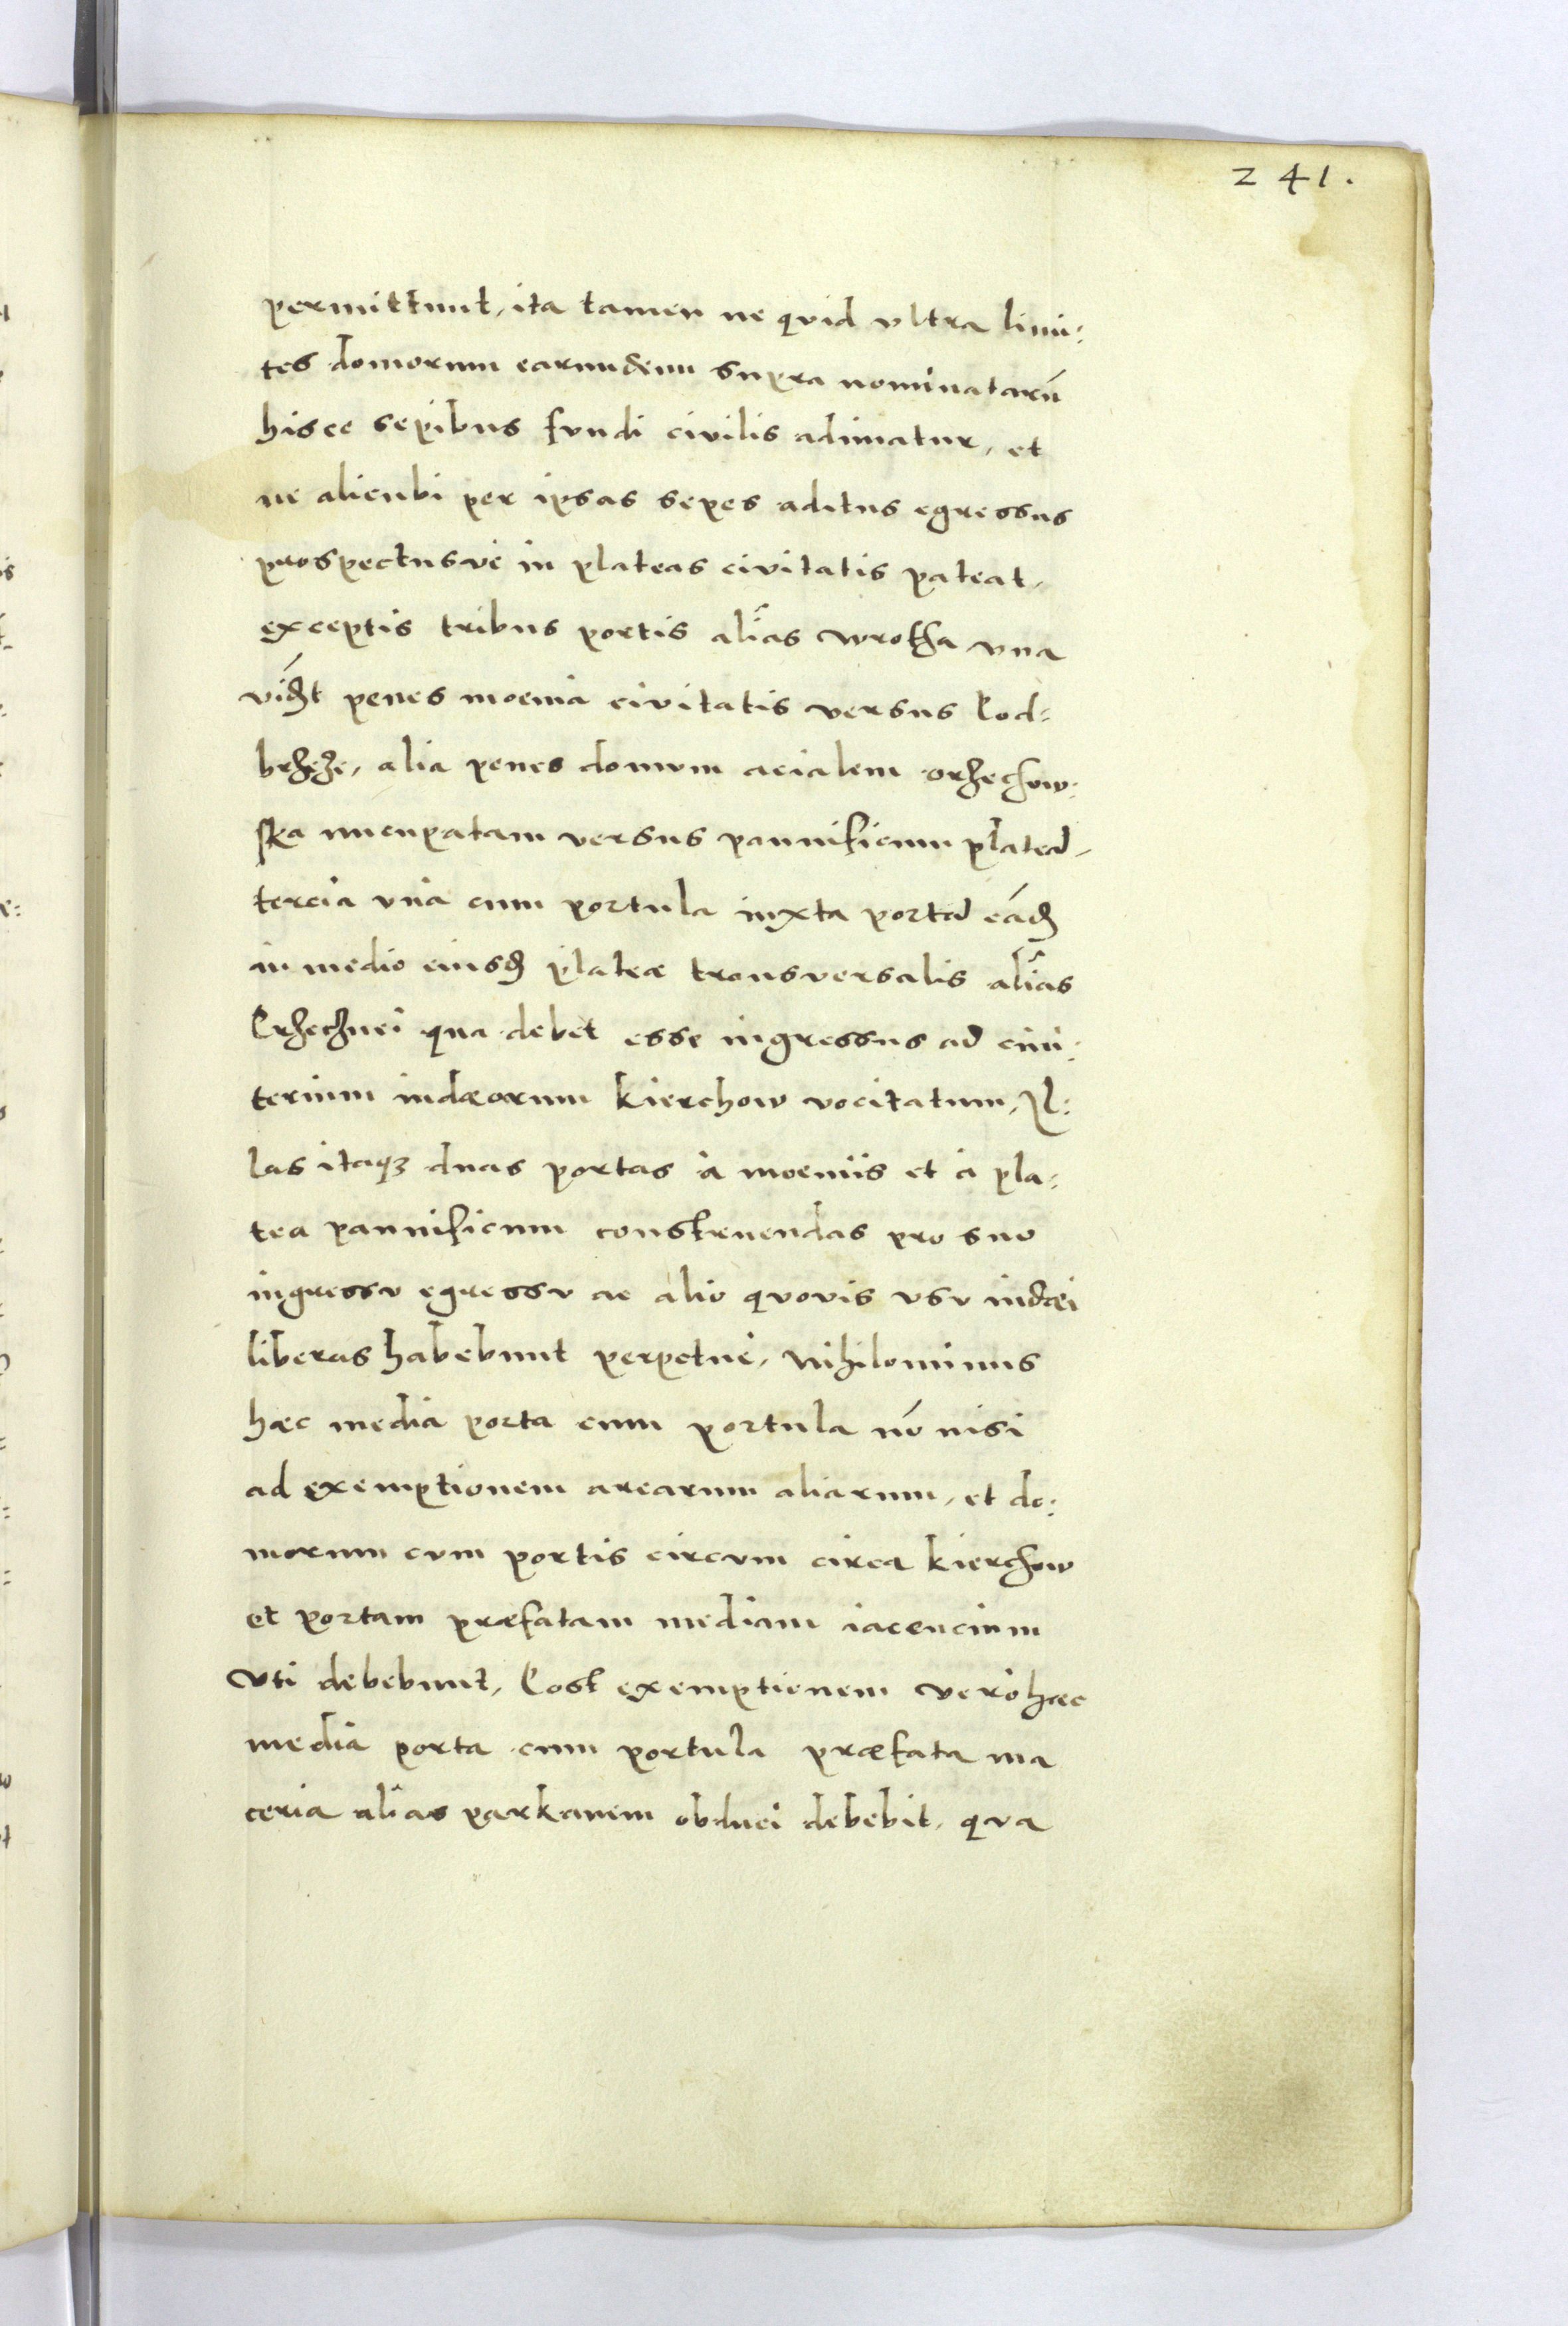 241.
permittunt, ita tamen ne quid vltra limi:
tes domorum earundem supra nominatarū
hisce sepibus fundi civilis adimatur, et
ne alicubi per ipsas sepes aditus egressus
prospectusve in plateas civitatis pateat,
exceptis tribus portis aliâs wrotha vna
vidꝫt penes moenia civitatis versus Pod:
brzeże, alia penes domum acialem orzechow:
ska nuncupatam versus pannificum plateā,
tercia vna cum portula iuxta portā eādꝫ
in medio eiusdꝫ plateæ transversalis aliâs
Przecznei qua debet esse ingressus ad cimi:
terium iudæorum Kierchow vocitatum, Il:
las itaqꝫ duas portas à moeniis et à pla:
tea pannificum construendas pro suo
ingressu egressu ac alio quovis vsu iudæi
liberas habebunt perpetuè, Nihilominus
hæc media porta cum portula nō nisi
ad exemptionem arearum aliarum, et do:
morum cum portis circum circa Kierchow
et portam præfatam mediam iacencium
vti debebunt, Post exemptionem verò hæc
media porta cum portula præfata ma
ceria aliâs parkanem obduci debebit, qua